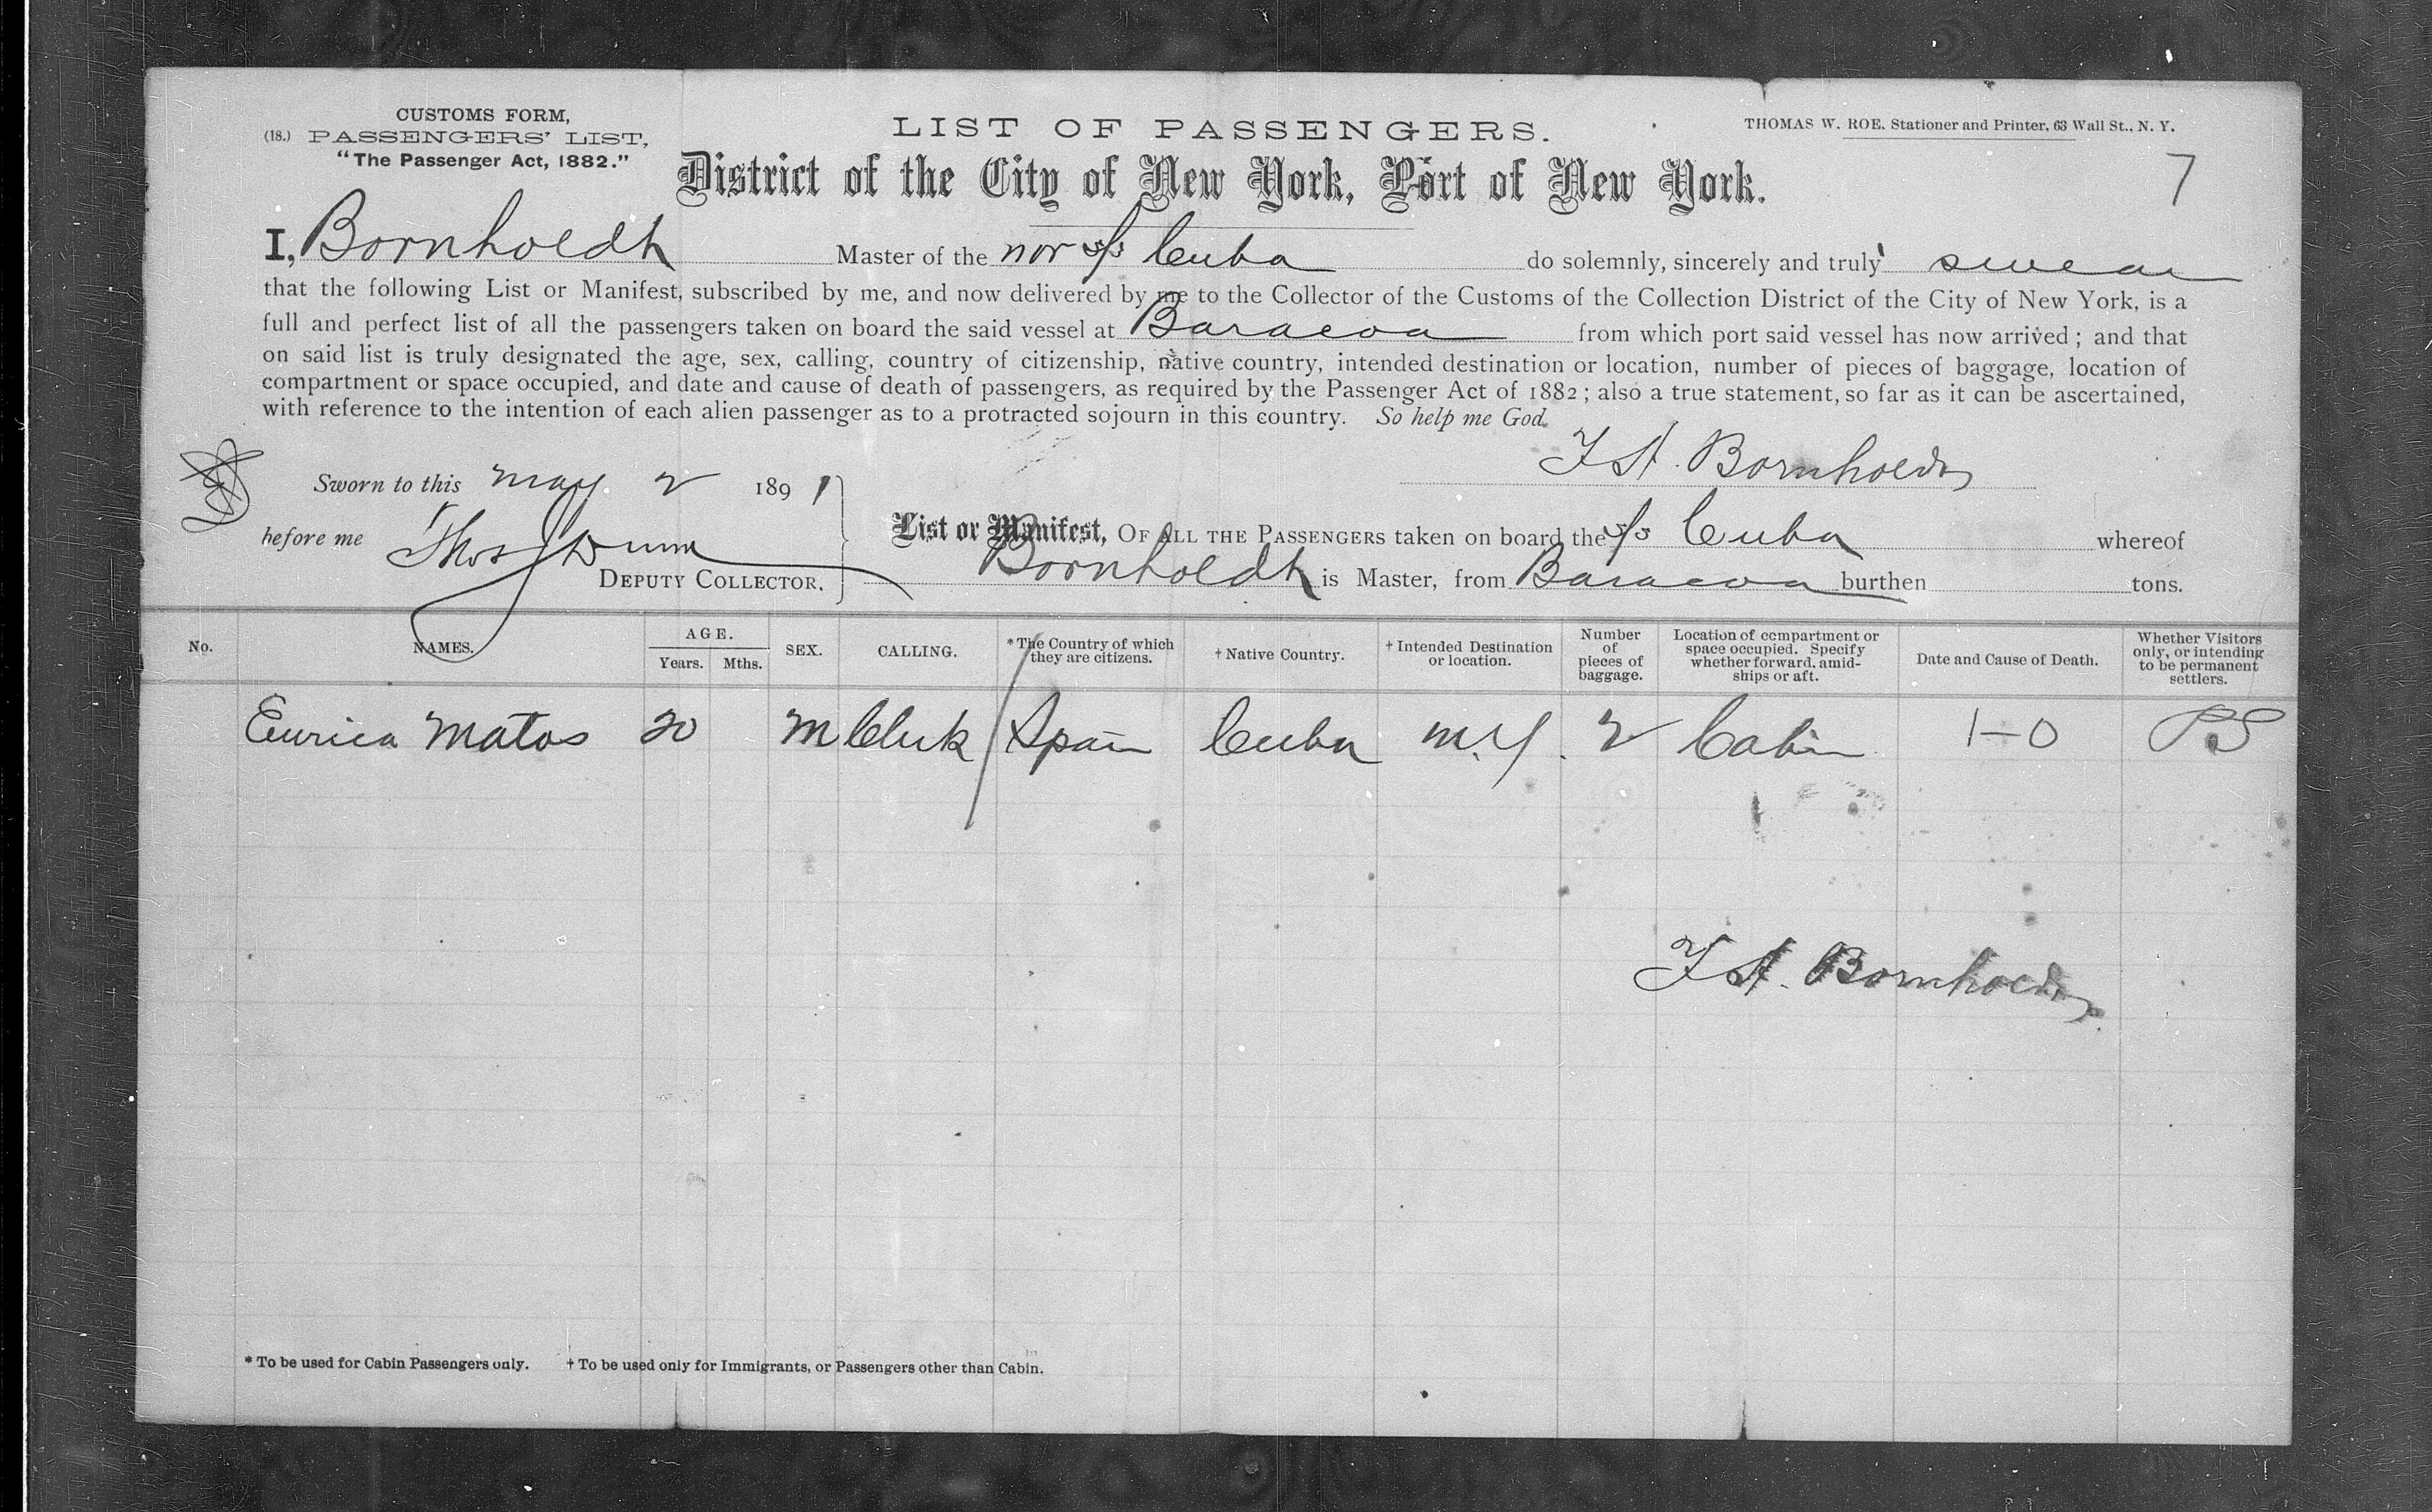 CUSTOMS FORM,
(18.) PASSENGERS' LIST,
"The Passenger Act, 1882."
LIST OF PASSENGERS.
THOMAS W. ROE, Stationer and Printer, 63 Wall St., N. Y.
District of the City of New York, Port of New York.
7
I, Bornholdt Master of the nor s/s Cuba do solemnly, sincerely and truly swear
that the following List or Manifest, subscribed by me, and now delivered by me to the Collector of the Customs of the Collection District of the City of New York, is a
full and perfect list of all the passengers taken on board the said vessel at Baracoa from which port said vessel has now arrived; and that
on said list is truly designated the age, sex, calling, country of citizenship, native country, intended destination or location, number of pieces of baggage, location of
compartment or space occupied, and date and cause of death of passengers, as required by the Passenger Act of 1882; also a true statement, so far as it can be ascertained,
with reference to the intention of each alien passenger as to a protracted sojourn in this country. So help me God.
Bornholdt
Sworn to this May 2 1891
before me Thos J Dunn
DEPUTY COLLECTOR.
List or Manifest, OF ALL THE PASSENGERS taken on board the s/s Cuba whereof
Bornholdt is Master, from Baracoa burthen tons.
No. NAMES. AGE. Years. Mths. SEX. CALLING. *The Country of which they are citizens. †Native Country. †Intended Destination or location. Number of pieces of baggage. Location of compartment or space occupied. Specify whether forward, amidships or aft. Date and Cause of Death. Whether Visitors only, or intending to be permanent settlers.
Eurica Matos 20 M Clerk Spain Cuba N.Y. 2 Cabin 1-0 PS
Bornholdt
* To be used for Cabin Passengers only. † To be used only for Immigrants, or Passengers other than Cabin.